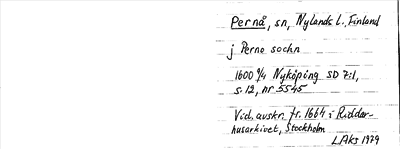 Pernå, sn, Nylands L., Finland
j Perne sochn
1600 9/4 Nyköping SD 7:1,
s. 12, nr 5545
Vid. avskr. fr. 1664 i Riddar-
husarkivet, Stockholm
LAks 1979